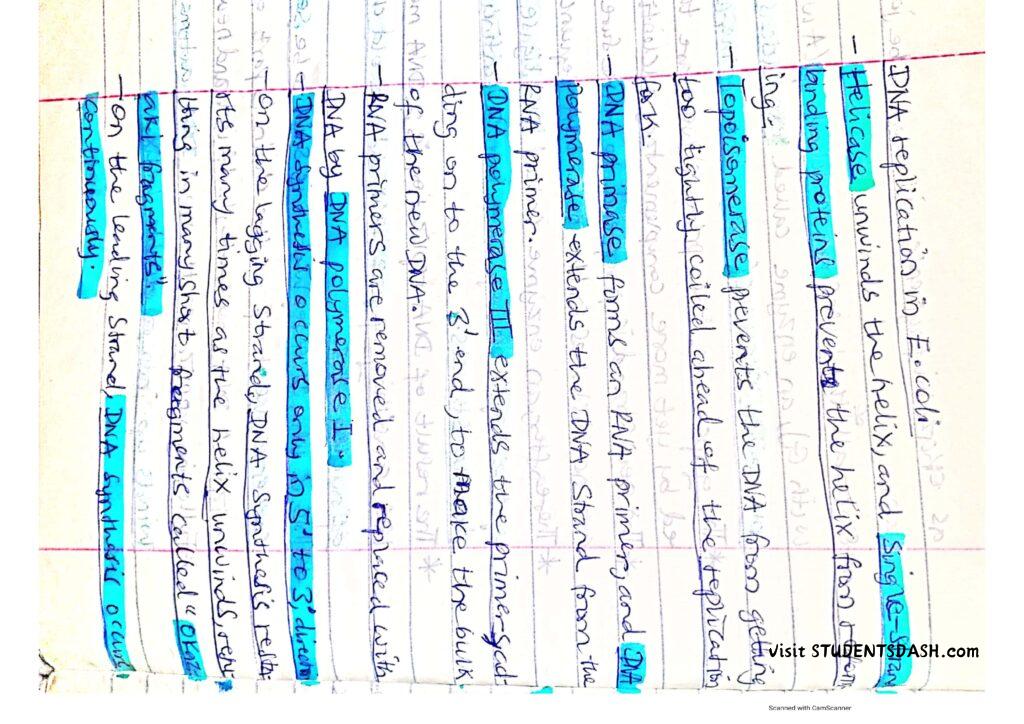 DNA replication in E. coli:
- Helicase unwinds the helix, and Single-stran
binding proteins prevents the helix from reform
ing.
- Topoisomerase prevents the DNA from getting
too tightly coiled ahead of the replication
fork.
- DNA primase forms an RNA primer, and DNA
polymerase extends the DNA strand from the
RNA primer.
- DNA polymerase III extends the primer, ad
ding on to the 3' end, to make the bulk
of the new DNA.
- RNA primers are removed and replaced with
DNA by DNA polymerase I.
- DNA synthesis occurs only in 5' to 3' direction
- on the lagging Strand, DNA Synthesis resta
rts many times as the helix unwinds, resul
thing in many short fragments called "Okaz
aki fragments"
- on the leading Strand, DNA synthesis occurs
continuously.
Visit STUDENTSDASH.com
Scanned with CamScanner